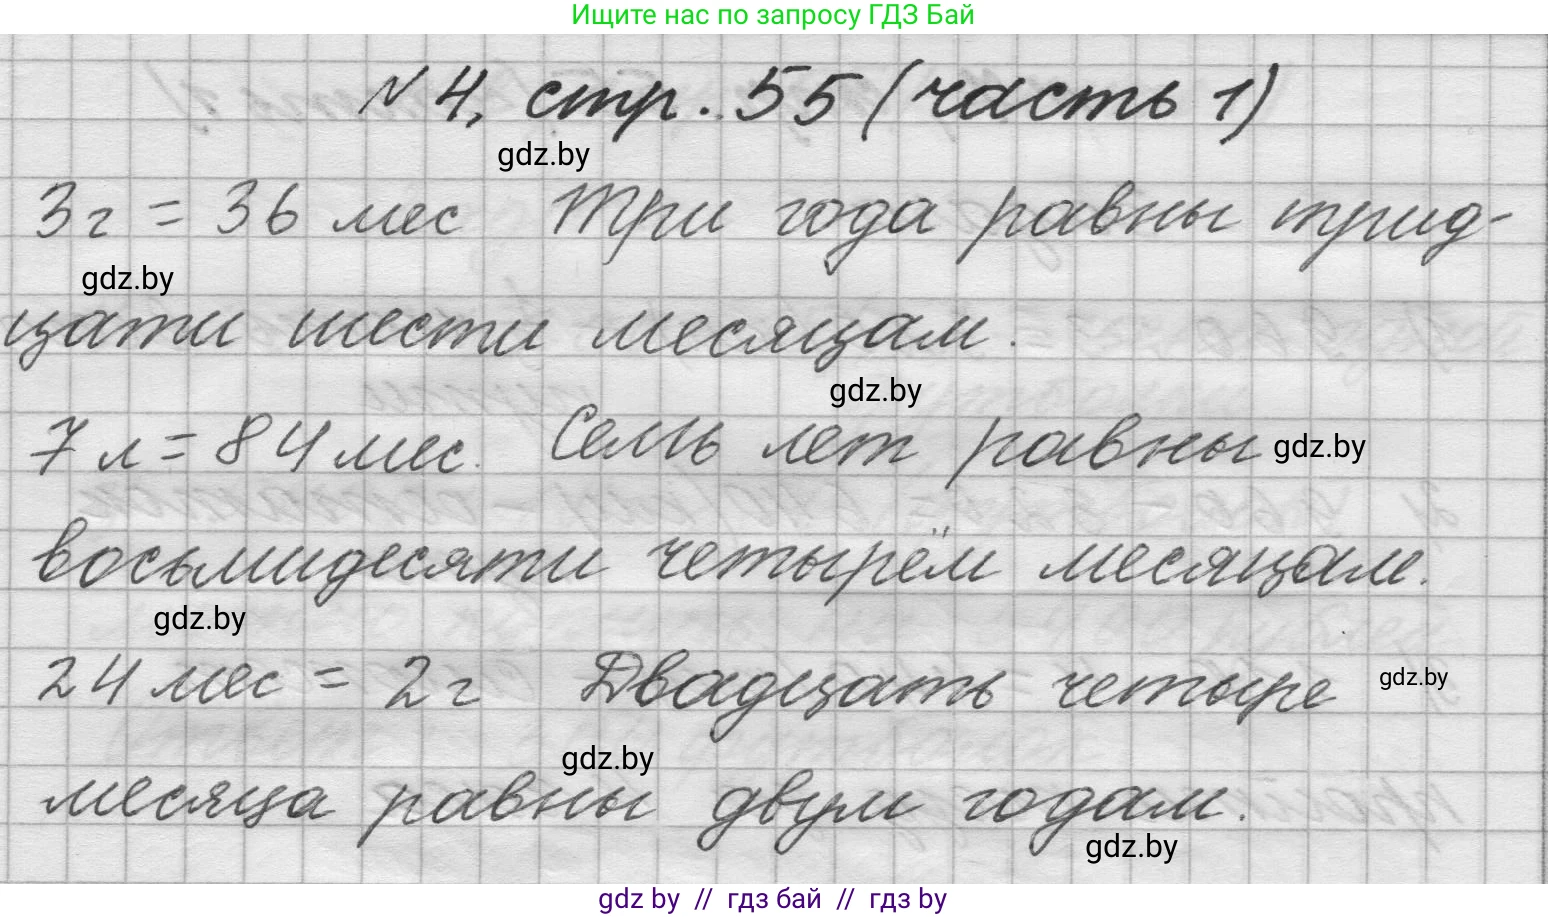 Ищите нас по запросу ГДЗ Бай
№4, стр. 55 (часть 1)
gdz.by
3г = 36 мес Три года равны трид-
gdz.by
цати шести месяцам.
gdz.by
7 л = 84 мес. Семь лет равны gdz.by
восьмидесяти четырём месяцам.
gdz.by
24 мес = 2 г Двадцать четыре gdz.by
gdz.by
месяца равны двум годам.
gdz.by
gdz by // гдз бай // гдз by